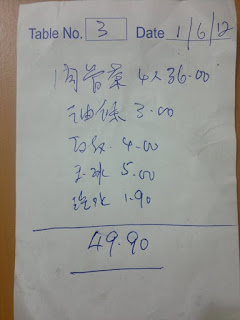 Table No. 3 Date 1/6/12
肉骨茶 4人 36.00
油條 3.00
4.00
5.00
1.90
49.90